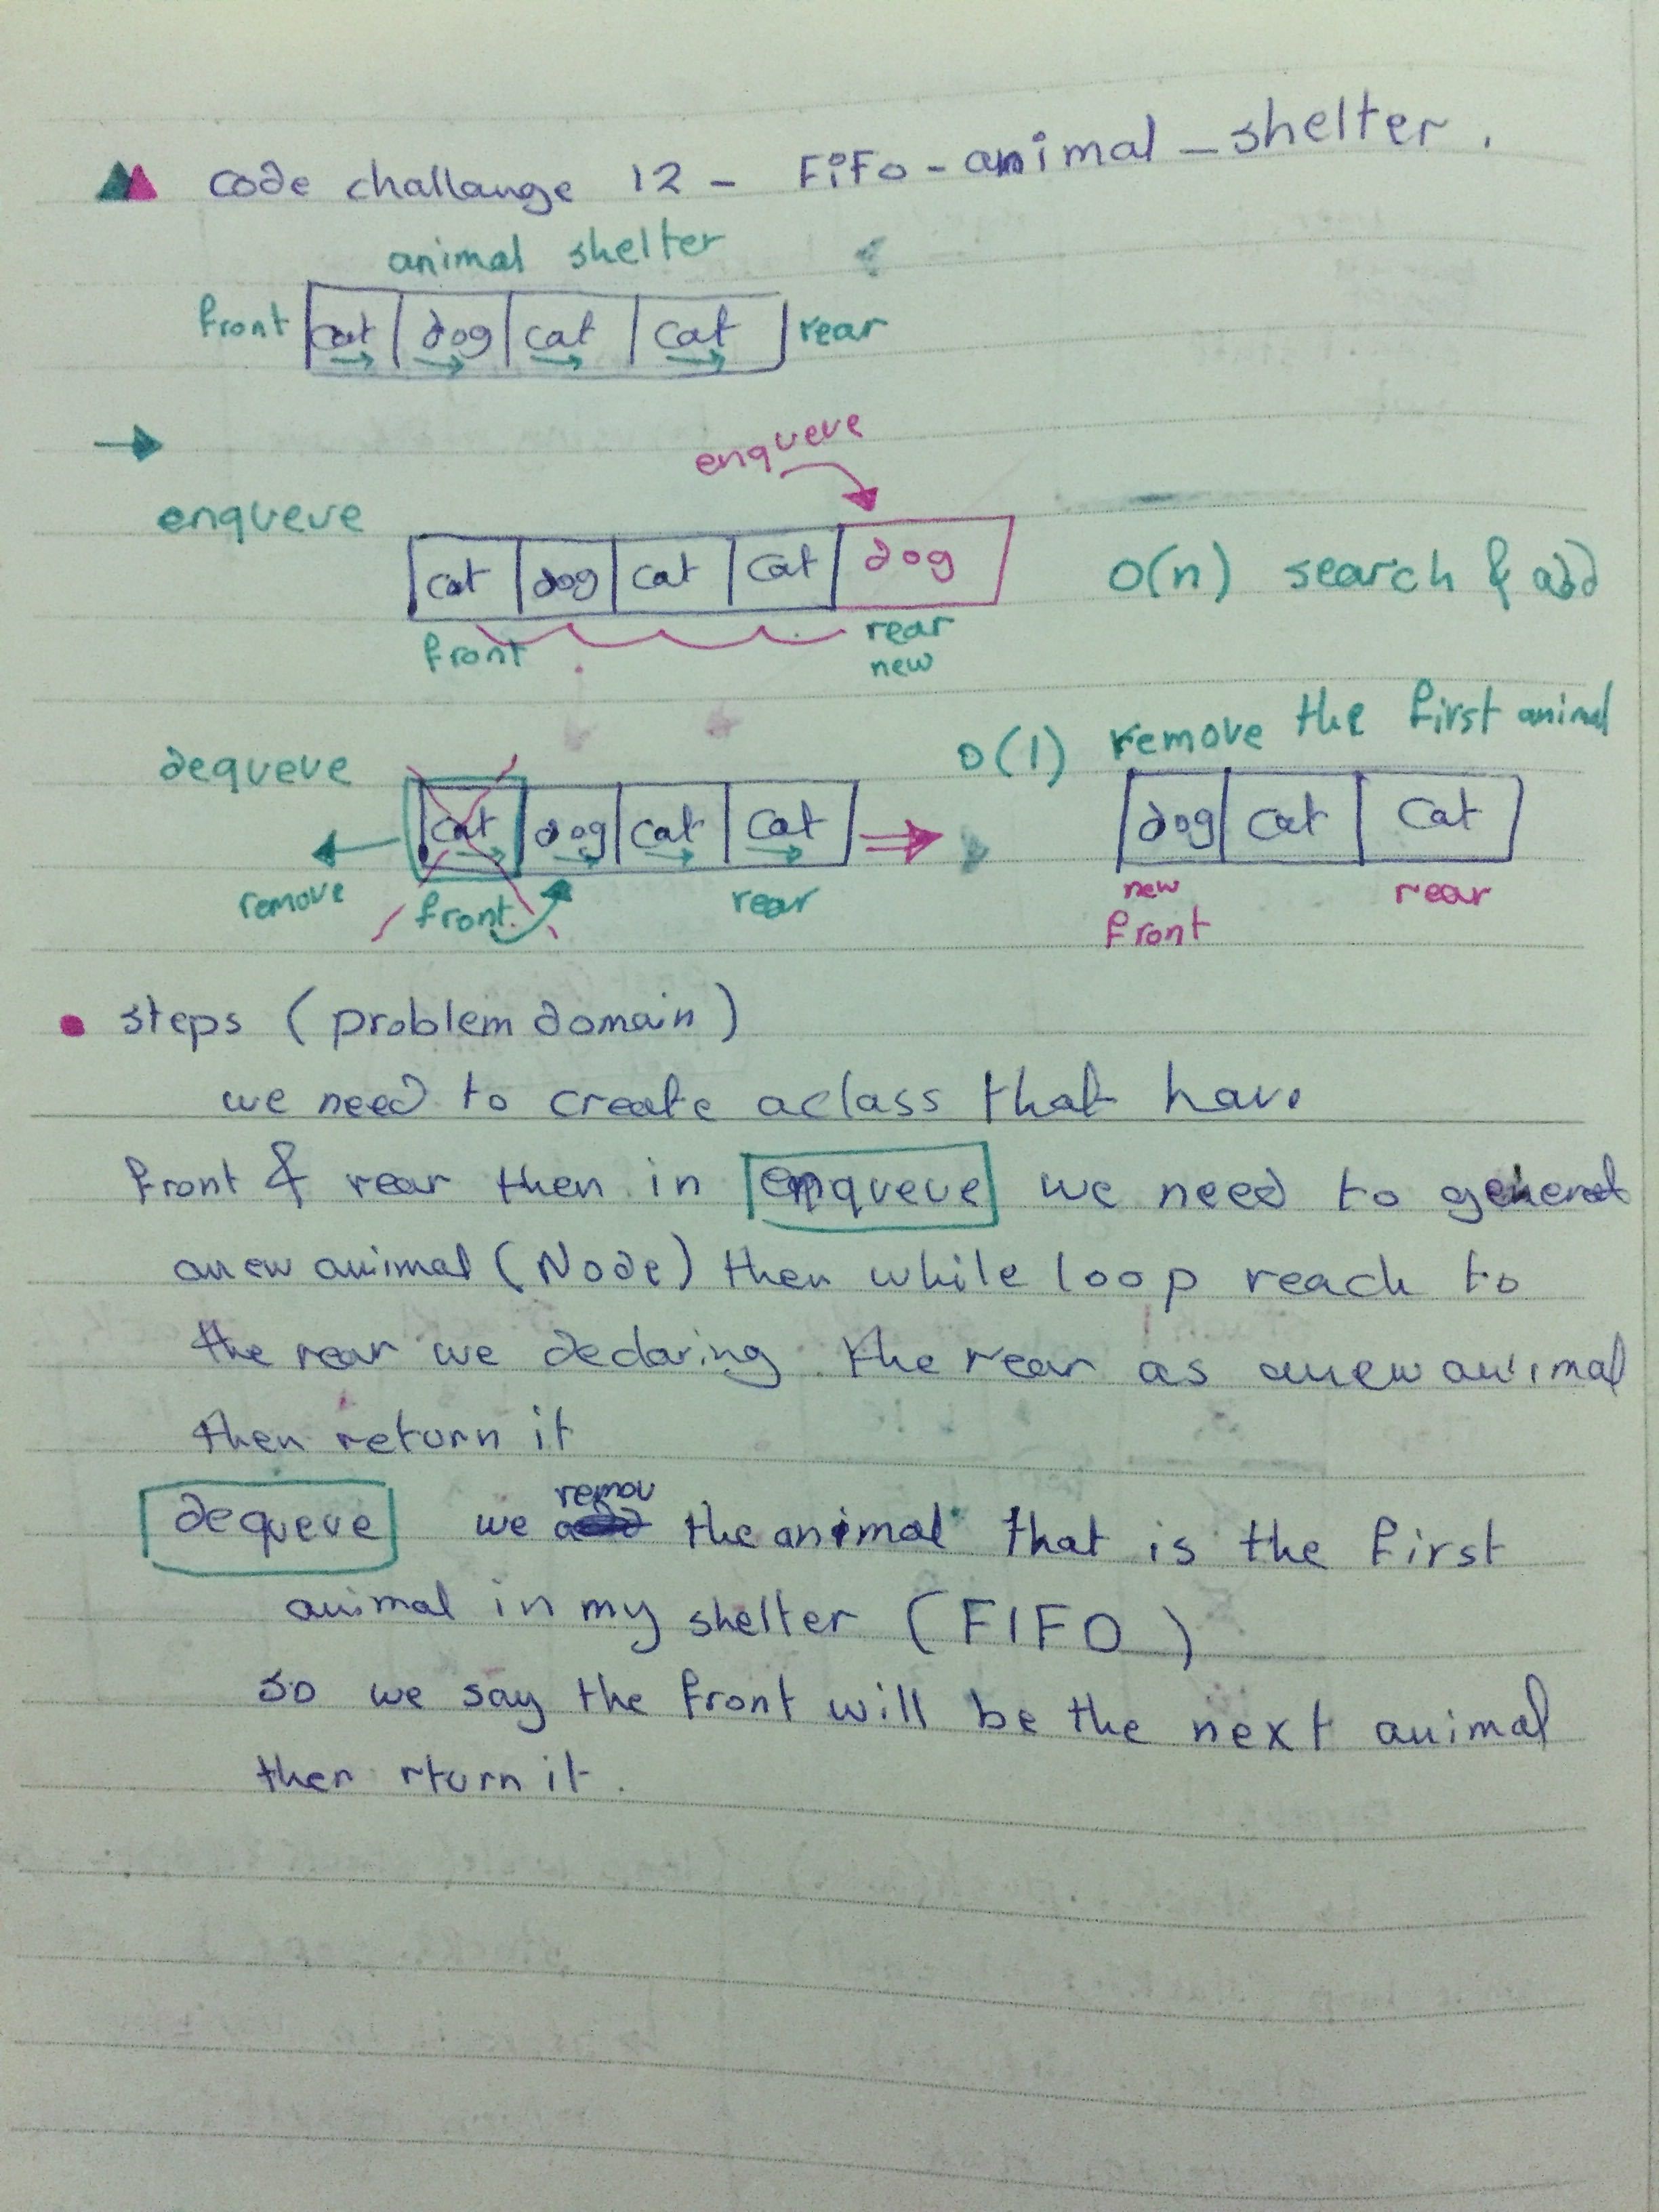 code challange 12 - FiFo - animal - shelter.
animal shelter
front cat dog cat cat rear
enqueue
enqueue
cat dog cat cat dog O(n) search & add
front rear
new
dequeue O(1) remove the first animal
cat dog cat cat dog cat cat
remove front rear new rear
front
steps (problem domain)
we need to create a class that have
front & rear then in enqueue we need to generat
a new animal (Node) then while loop reach to
the rear we declaring the rear as a new animal
then return it
dequeue we remov the animal that is the first
animal in my shelter (FIFO)
so we say the front will be the next animal
then rturn it.